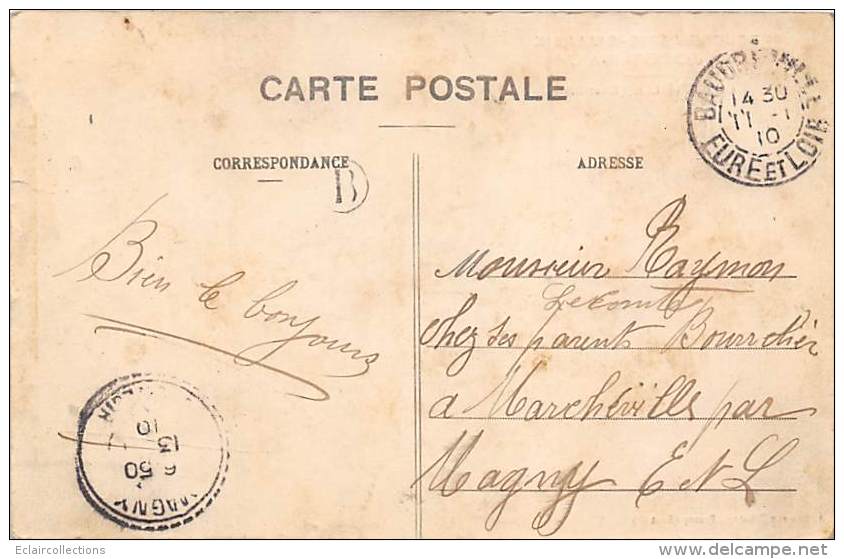 CARTE POSTALE
CORRESPONDANCE
B
ADRESSE
EURE ET LOIR
14 30
11 - 1
10
Bien le bonjours
Monsieur Raymon
Lecomte
chez ses parents Bourrelier
a Marchéville par
Magny E N L
10
13
6 50
MAGNY
Eclaircollections
www.delcampe.net